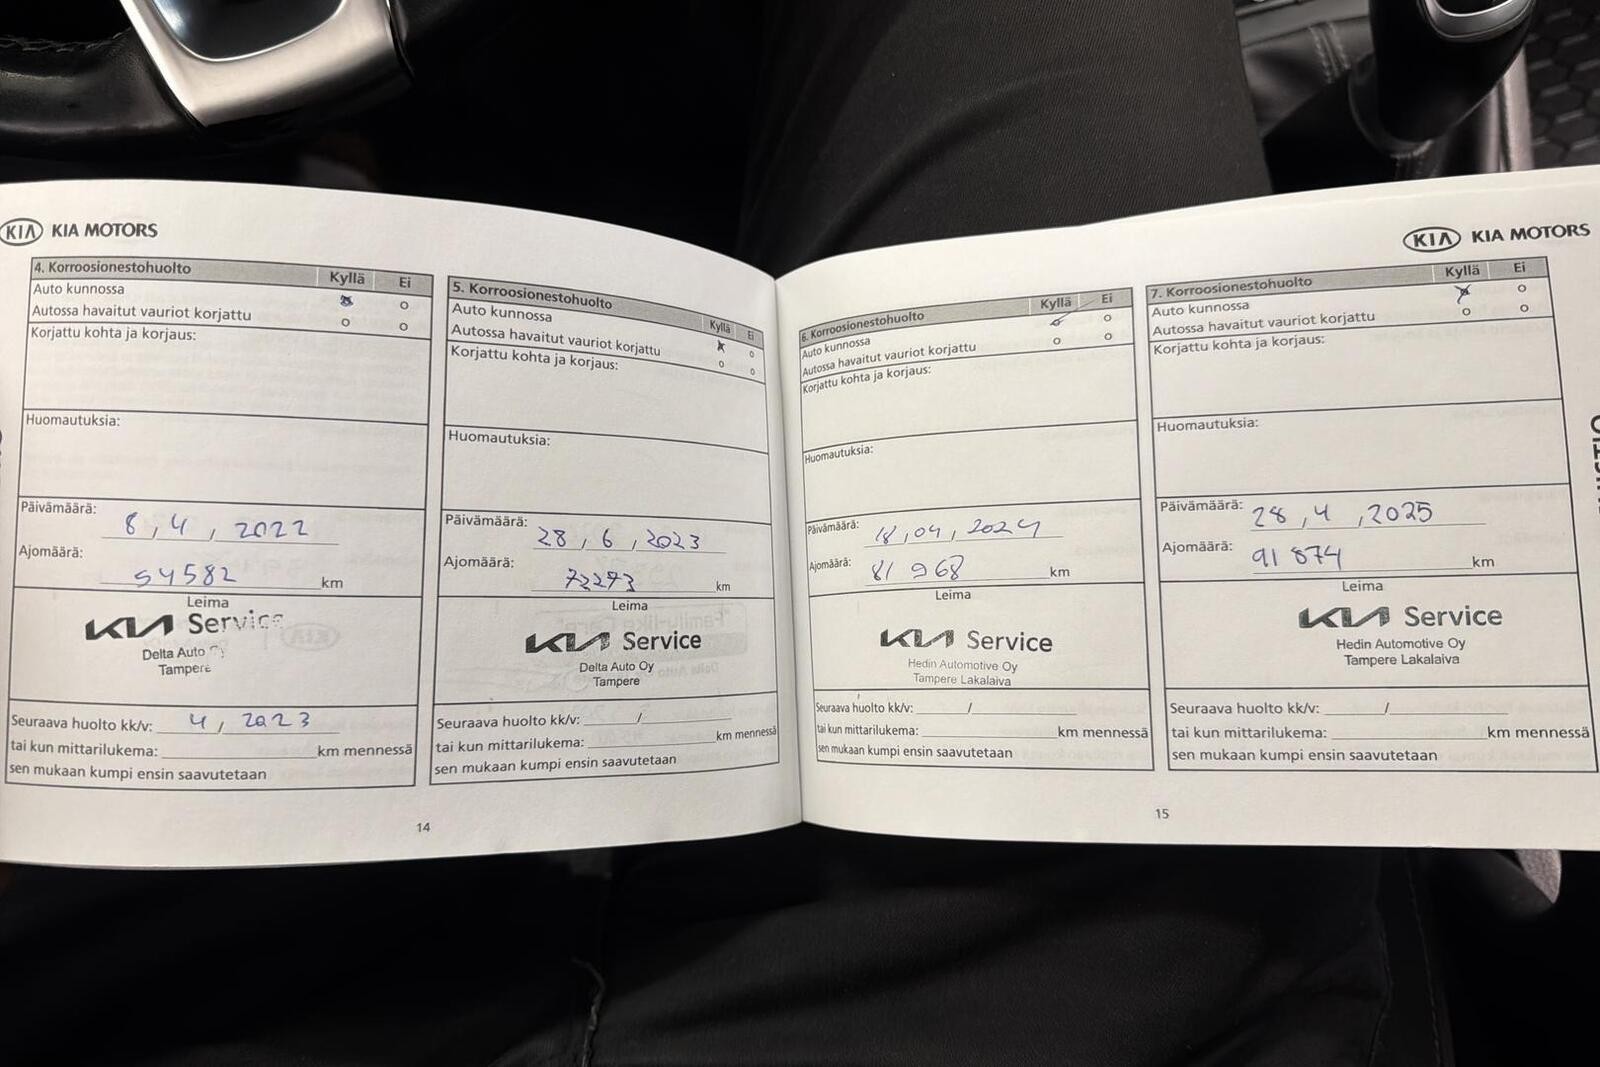 KIA KIA MOTORS
4. Korroosionestohuolto Kyllä Ei
Auto kunnossa
Autossa havaitut vauriot korjattu
Korjattu kohta ja korjaus:
Huomautuksia:
Päivämäärä: 8, 4, 2022
Ajomäärä: 54582 km
Leima
KIA Service
Delta Auto Oy
Tampere
Seuraava huolto kk/v: 4, 2023
tai kun mittarilukema: km mennessä
sen mukaan kumpi ensin saavutetaan
5. Korroosionestohuolto Kyllä Ei
Auto kunnossa
Autossa havaitut vauriot korjattu
Korjattu kohta ja korjaus:
Huomautuksia:
Päivämäärä: 28, 6, 2023
Ajomäärä: 72273 km
Leima
KIA Service
Delta Auto Oy
Tampere
Seuraava huolto kk/v: /
tai kun mittarilukema: km mennessä
sen mukaan kumpi ensin saavutetaan
14
KIA KIA MOTORS
6. Korroosionestohuolto Kyllä Ei
Auto kunnossa
Autossa havaitut vauriot korjattu
Korjattu kohta ja korjaus:
Huomautuksia:
Päivämäärä: 18, 04, 2024
Ajomäärä: 81 968 km
Leima
KIA Service
Hedin Automotive Oy
Tampere Lakalaiva
Seuraava huolto kk/v: /
tai kun mittarilukema: km mennessä
sen mukaan kumpi ensin saavutetaan
7. Korroosionestohuolto Kyllä Ei
Auto kunnossa
Autossa havaitut vauriot korjattu
Korjattu kohta ja korjaus:
Huomautuksia:
Päivämäärä: 28, 4, 2025
Ajomäärä: 91 874 km
Leima
KIA Service
Hedin Automotive Oy
Tampere Lakalaiva
Seuraava huolto kk/v: /
tai kun mittarilukema: km mennessä
sen mukaan kumpi ensin saavutetaan
15